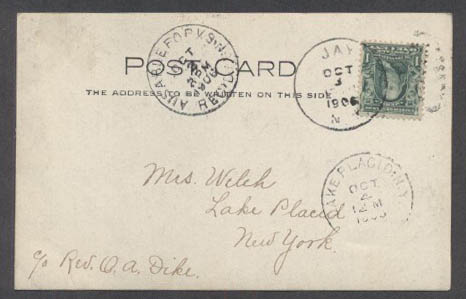 POST CARD
THE ADDRESS TO BE WRITTEN ON THIS SIDE
AUSABLE FORKS
OCT
1906
REC'D
JAY
OCT
3
1906
N
LAKE PLACID N.Y.
OCT
4
12 M
1906
Mrs. Welch
Lake Placid
New York.
c/o Rev. O. A. Dike.